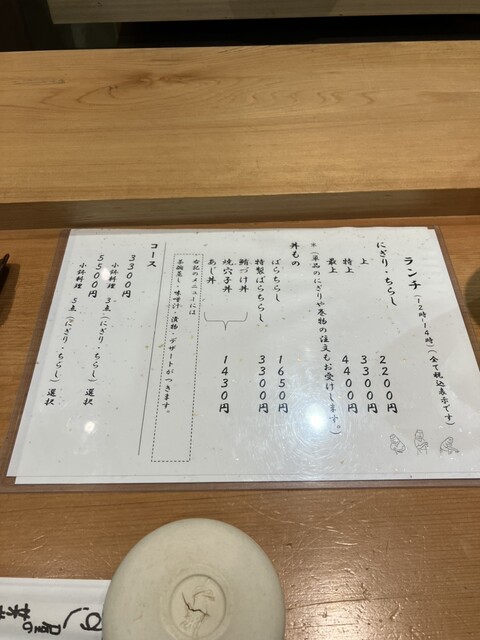 ランチ(12時~14時)(全て税込表示です)
にぎり・ちらし
上 2200円
特上 3300円
最上 4400円
*(単品のにぎりや巻物の注文もお受けします。)
丼もの
ばらちらし 1650円
特製ばらちらし 3300円
鮪づけ丼
焼穴子丼
あじ丼
1430円
右記のメニューには
茶碗蒸し・味噌汁・漬物・デザートがつきます。
コース
3300円
小鉢料理 3点(にぎり・ちらし)選択
5500円
小鉢料理 5点(にぎり・ちらし)選択